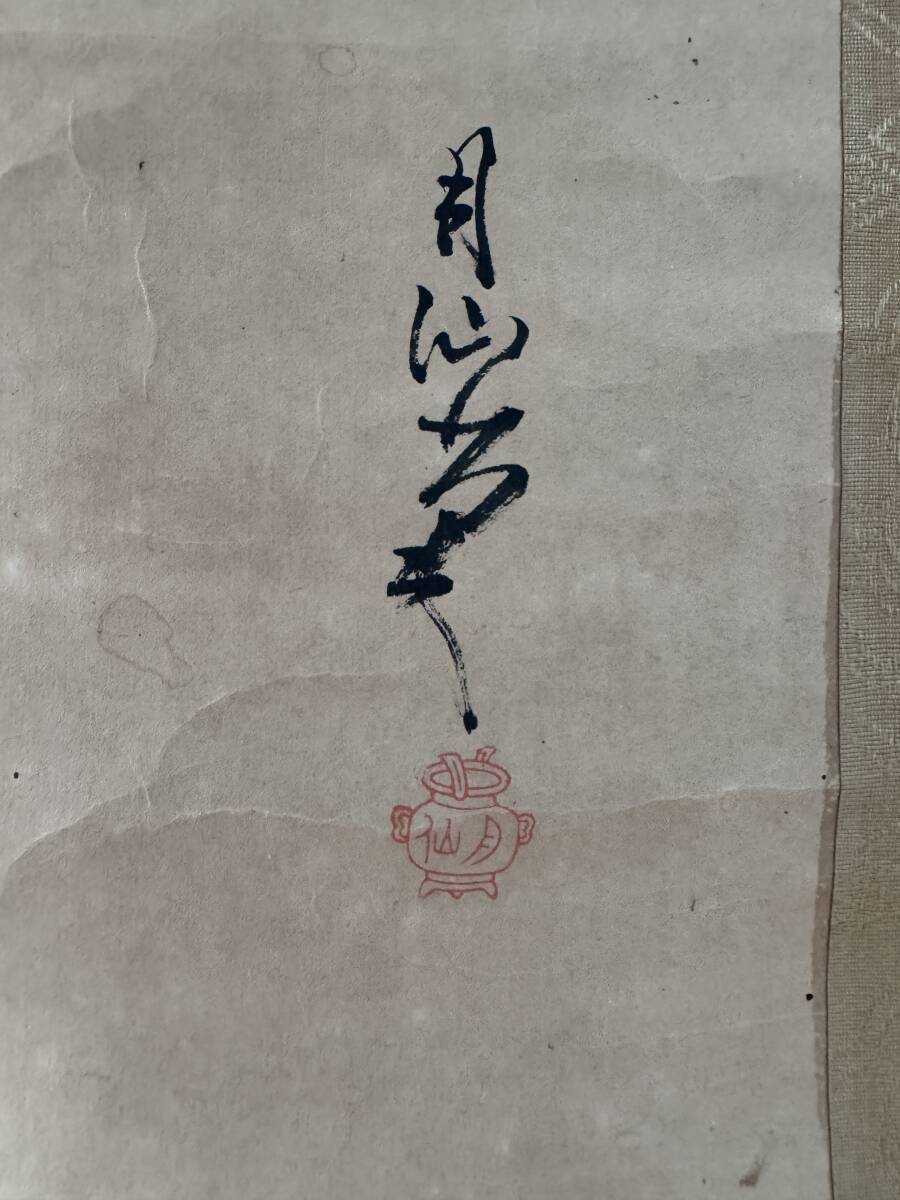 月仙
月仙